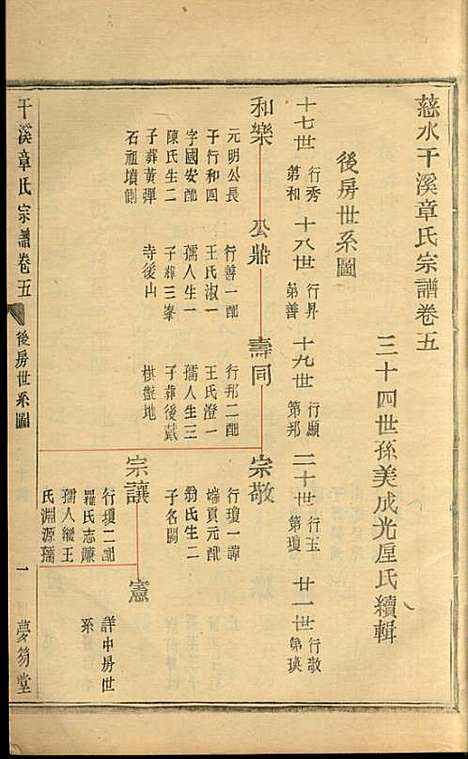 慈水干溪章氏宗譜卷五
三十四世孫美成光厘氏續輯
後房世系圖
十七世 行秀第和 十八世 行昇第善 十九世 行顯第邦 二十世 行玉第瓊 廿一世 行敬第瑛
和樂 公鼎 壽同 宗敬
元明公長
于行和四
字國安配
陳氏生二
子葬黃彈
石祖墳側
行善一配
王氏淑一
孺人生一
子葬三峯
寺後山
行邦二配
王氏澄一
孺人生三
子葬後
棋盤地
行瓊一諱
端貢元配
翁氏生二
子名閣
宗讓 憲
行瓊二配
羅氏志廉
孺人縱王
氏淵源孺
詳中房世
系
干溪章氏宗譜卷五 後房世系圖 一 夢芴堂